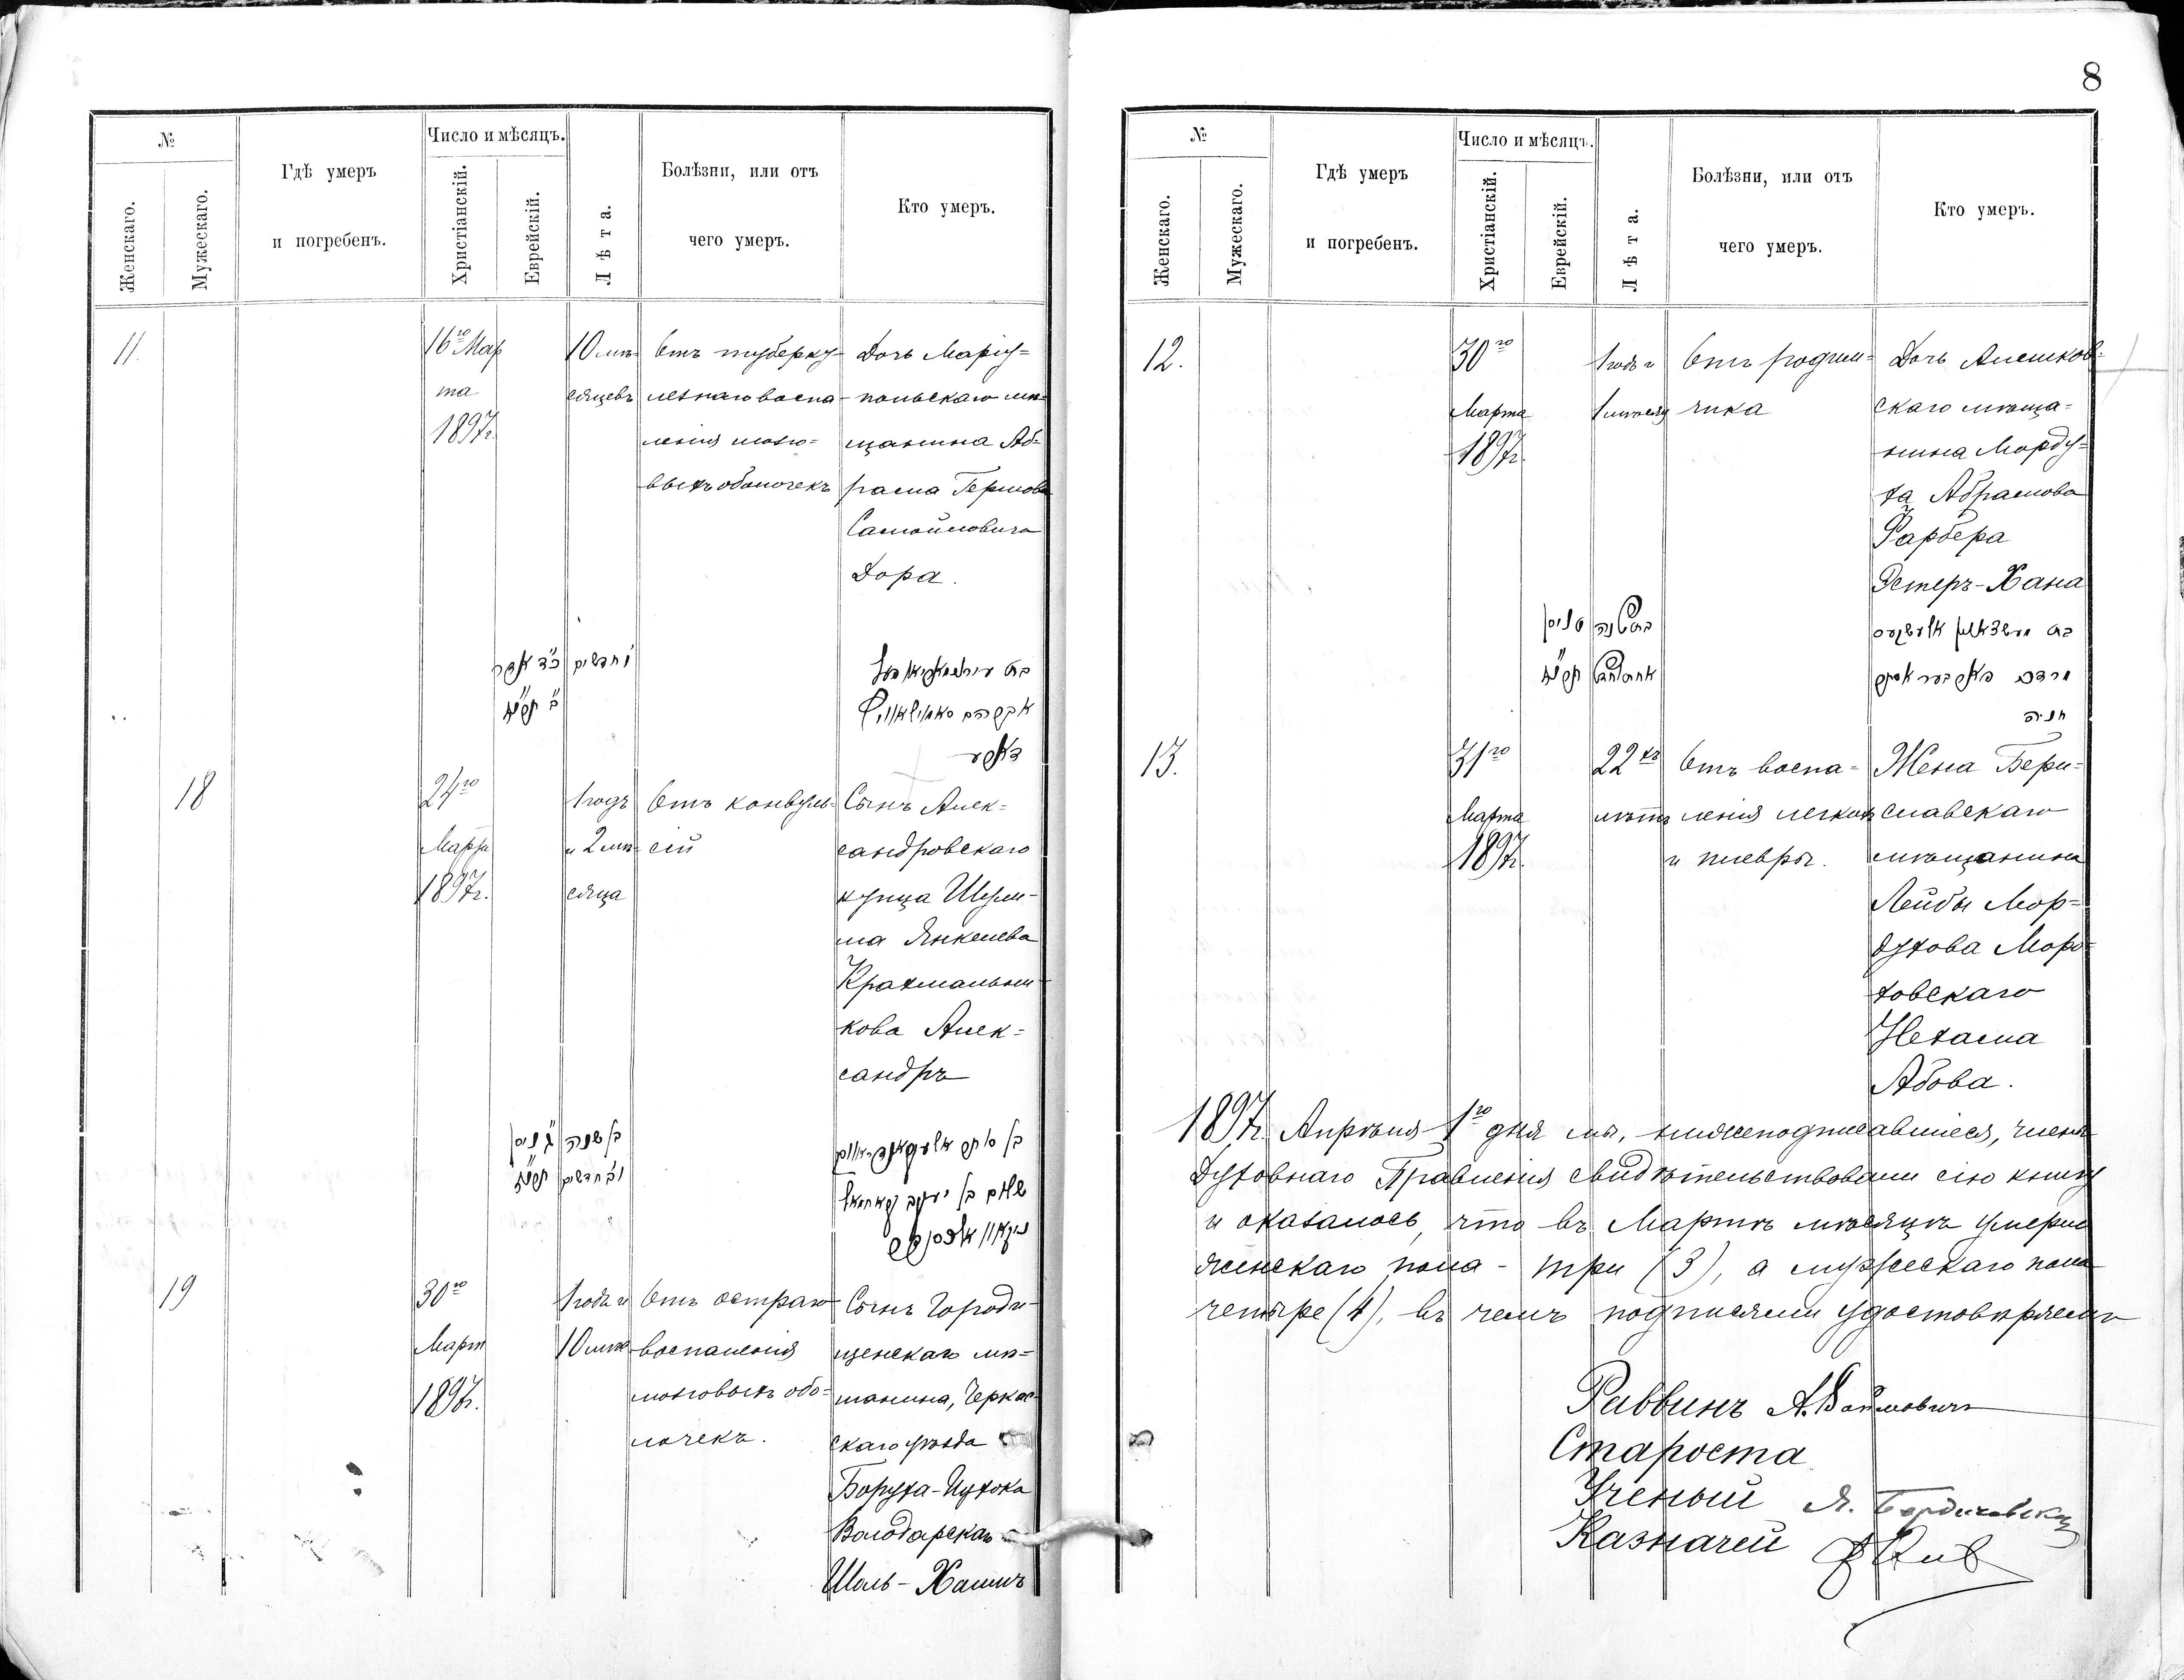 №
Женскаго.
Мужескаго.
Гдѣ умеръ
и погребенъ.
Число и мѣсяцъ.
Христіанскій.
Еврейскій.
Лѣта.
Болѣзни, или отъ
чего умеръ.
Кто умеръ.
11.
16го Мар
та
1897г.
10 мѣ-
сяцевъ
Отъ туберку-
лезнаго воспа-
ленія мозго-
выхъ оболочекъ
Дочь Маріу=
польскаго мѣ-
щанина Аб=
рама Гершова
Самойловича
Дора.
כ״ד אדר
ב׳ תרנ״ז
י׳ חדשים
בת
אברהם סאמוילאוויץ
18
24го
Марта
1897г.
1 годъ
и 2 мѣ-
сяца
Отъ конвуль-
сій
Сынъ Алек=
сандровскаго
купца Шули-
ма Янкелева
Крахмальни-
кова Алек=
сандръ
ניסן
תרנ״ז
בן שנה
וב׳ חדשים
שלום בן יעקב
19
30го
Март
1897г.
1 годъ и
10 мѣс
Отъ остраго
воспаленія
мозговыхъ обо=
лочекъ.
Сынъ Городи-
щенскаго мѣ=
щанина, Черкас-
скаго уѣзда
Боруха-Ицхока
Володарскаго
Шоль-Хаимъ
8
№
Женскаго.
Мужескаго.
Гдѣ умеръ
и погребенъ.
Число и мѣсяцъ.
Христіанскій.
Еврейскій.
Лѣта.
Болѣзни, или отъ
чего умеръ.
Кто умеръ.
12.
30го
Марта
1897г.
1 годъ и
1 мѣсяц
Отъ родим=
чика
Дочь Алешков=
скаго мѣща=
нина Морду=
ха Абрамова
Фарбера
Эстеръ-Хана
ניסן
תרנ״ז
בת שנה
חנה
13.
31го
Марта
1897г.
22хъ
лѣтъ
Отъ воспа=
ленія легкихъ
и плевры.
Жена Бери=
славскаго
мѣщанина
Лейбы Мор=
духова Моро-
ховскаго
Нехама
Абова.
1897г. Апрѣля 1го дня мы, нижеподписавшіеся, члены
Духовнаго Правленія свидѣтельствовали сію книгу
и оказалось, что въ Мартѣ мѣсяцѣ умерло
женскаго пола - три (3), а мужескаго пола
четыре (4), въ чемъ подписями удостовѣряемъ
Раввинъ А.
Староста
Ученый Я. Бердичевскій
Казначей